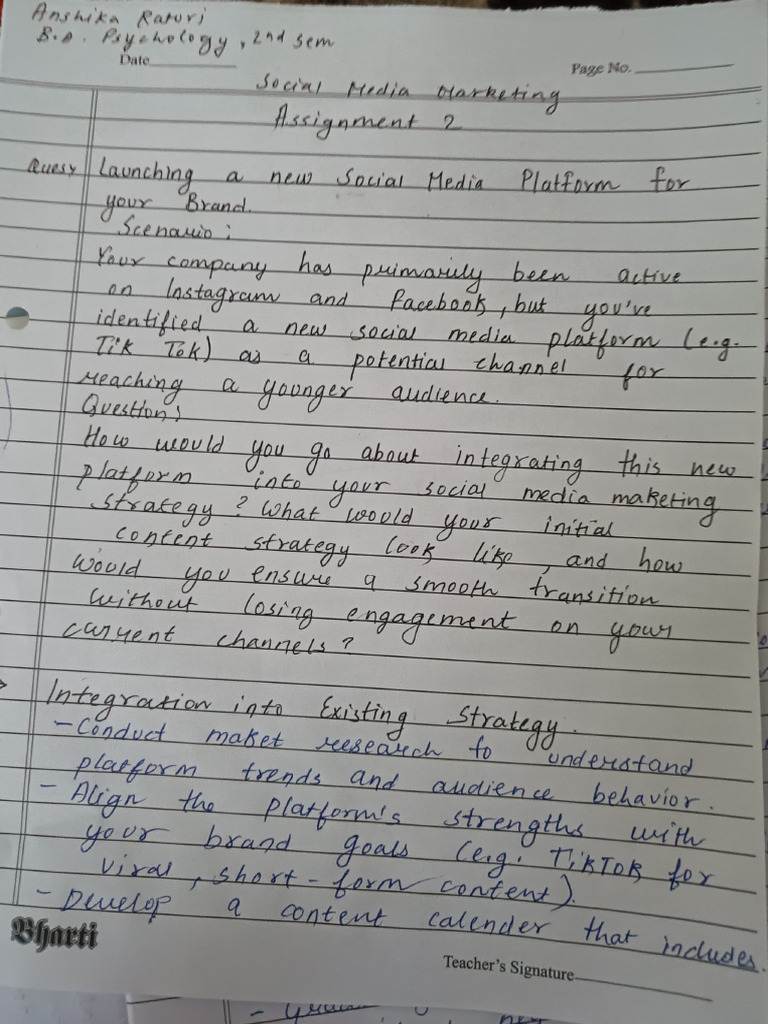 Anshika Raturi
B.A. Psychology, 2nd sem
Date
Page No.
Social Media Marketing
Assignment 2
Ques> Launching a new Social Media Platform for
your Brand.
Scenario:
Your company has primarily been active
on Instagram and Facebook, but you've
identified a new social media platform (e.g.
Tik Tok) as a potential channel for
reaching a younger audience.
Question:
How would you go about integrating this new
platform into your social media maketing
strategy? What would your initial
content strategy look like, and how
would you ensure a smooth transition
without losing engagement on your
current channels?
Integration into Existing Strategy.
- Conduct maket research to understand
platform trends and audience behavior.
- Align the platform's strengths with
your brand goals (e.g. TikTok for
viral, short-form content).
- Develop a content calender that includes
Bharti
Teacher's Signature